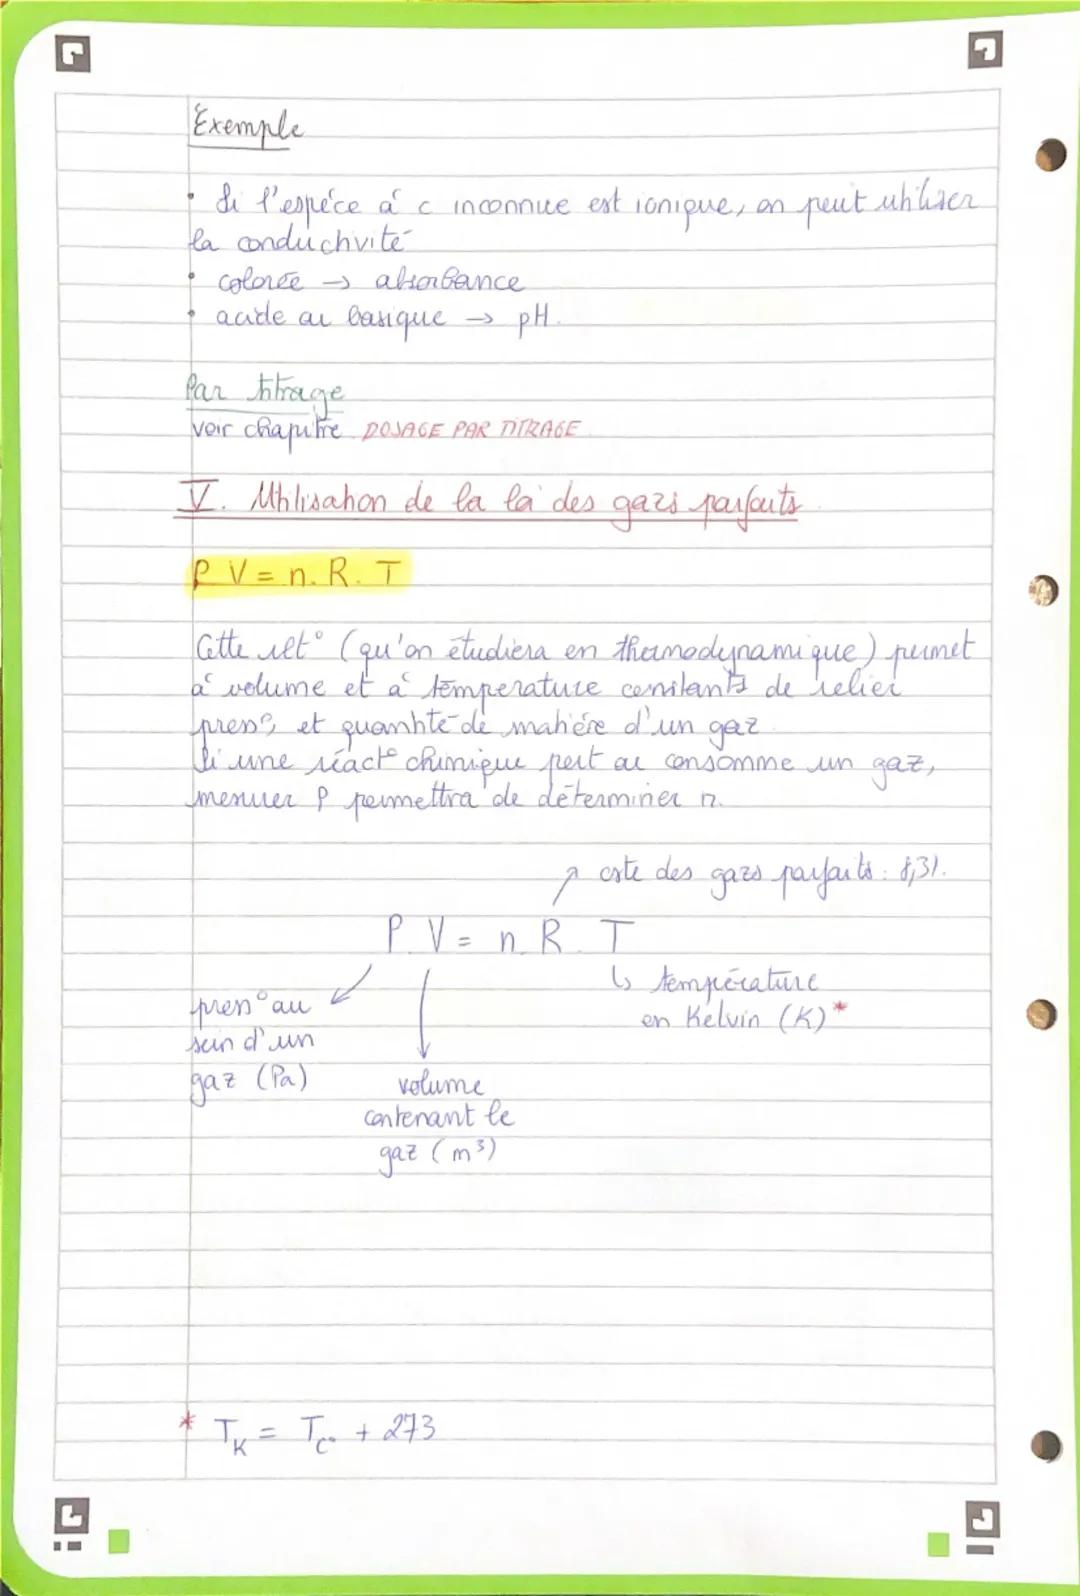 Exemple
• Si l'espéce à c inconnue est ionique, on peut utiliser
la conductivité
• colorée → absorbance
• acide ou basique → pH.
Par titrage
voir chapitre DOSAGE PAR TITRAGE
V. Utilisation de la loi des gazs parfaits
P V = n. R. T
Cette relt° (qu'on étudiera en thermodynamique) permet
à volume et à température constants de relier
press°, et quantité de matière d'un gaz.
Si une réact° chimique pert ou consomme un gaz,
mesurer P permettra de déterminer n.
↗ cste des gazs parfaits : 8,31.
P. V = n. R. T
↳ température
en Kelvin (K)*
press° au
sein d'un
gaz (Pa)
volume
contenant le
gaz (m³)
* T_K = T_C° + 273